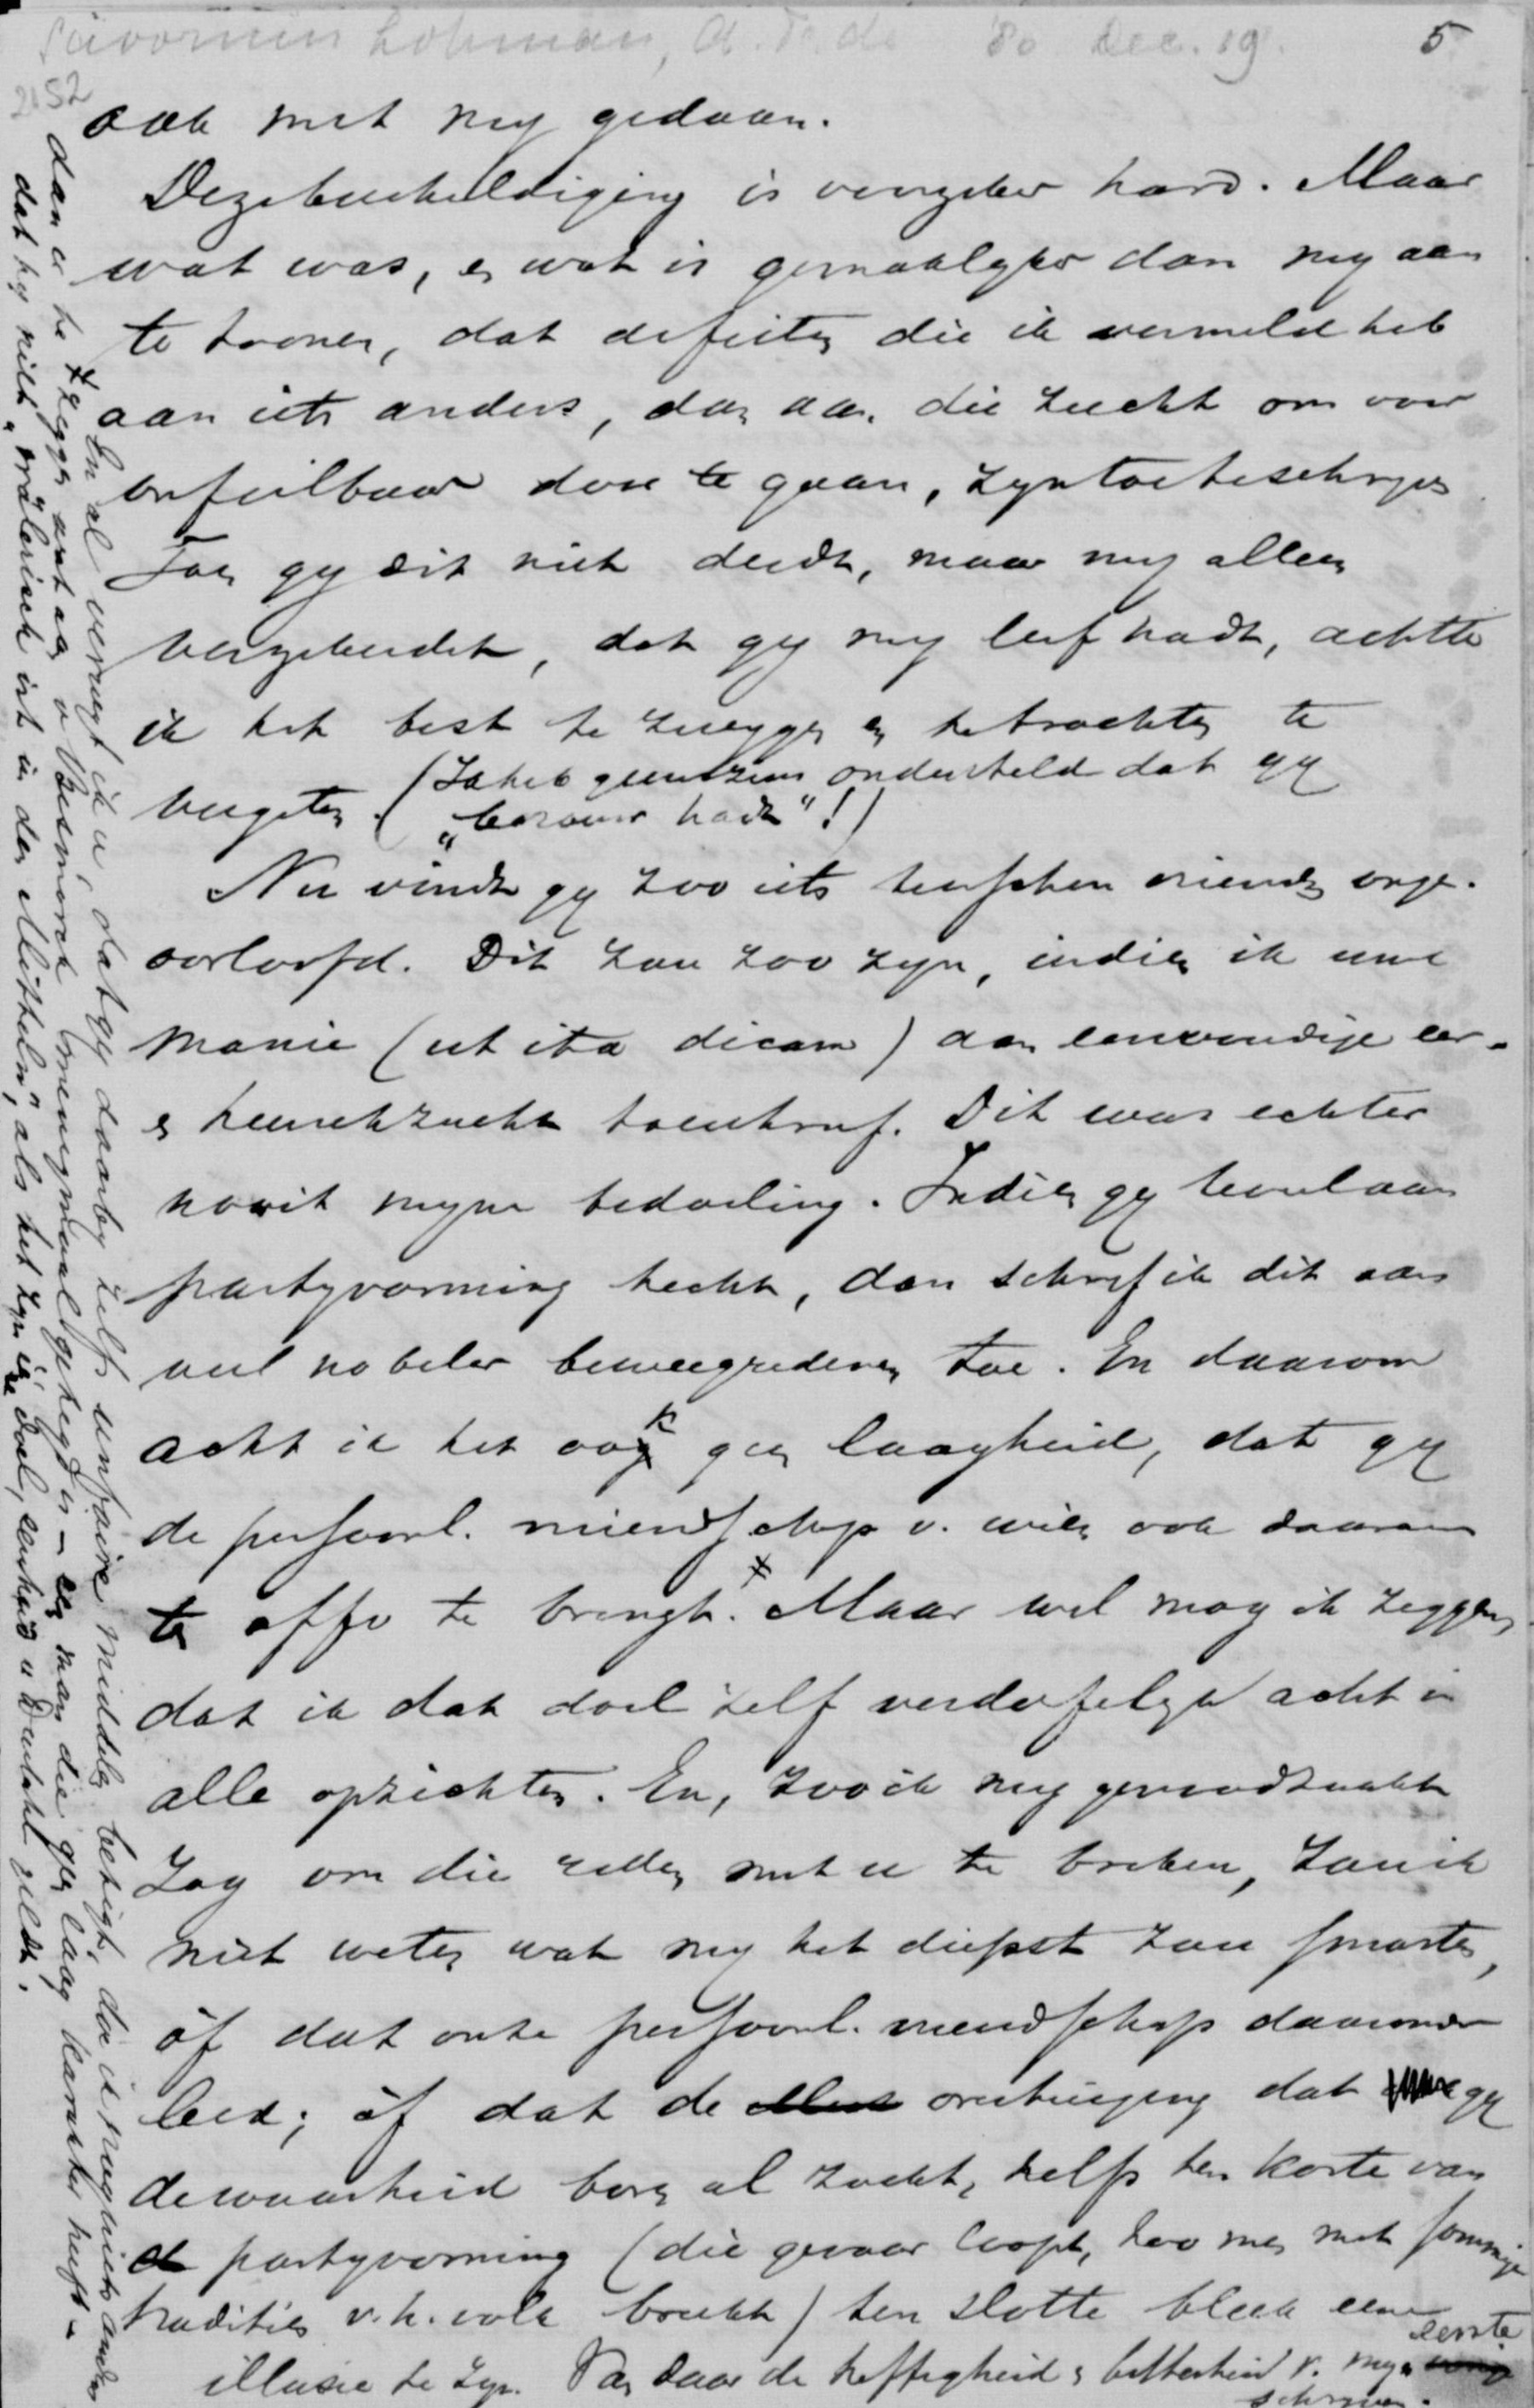 Savornin Lohman, A. F. de 80 Dec. 19. 5
2152
ook met my gedaan.
Deze beschuldiging is vreeselijk hard. Maar
wat was, en wat is gemakkelyker dan my aan
te toonen, dat de feiten die ik vermeld heb
aan iets anders, dan aan die zucht om voor
onfeilbaar door te gaan, zyn toe te schryven
Toen gy dit niet deedt, maar my alleen
verzekerdet, dat gy my lief hadt, achtte
ik het best te zwygen en te trachten te
vergeten. (Ik heb geenszins ondersteld dat gy
„berouw hadt"!)
Nu vindt gy zoo iets tusschen vrienden onge-
oorloofd. Dit zou zoo zyn, indien ik uwe
manie (ut ita dicam) aan eenvoudige eer-
en heerschzucht toeschreef. Dit was echter
nooit myne bedoeling. Indien gy veel aan
partyvorming hecht, dan schryf ik dit aan
veel nobeler beweegredenen toe. En daarom
acht ik het ook geen laagheid, dat gy
de persoonl. vriendschap v. velen ook daaraan
ten offer te brengt. Maar wel mag ik zeggen,
dat ik dat doel zelf verderfelyk acht in
alle opzichten. En, zoo ik my genoodzaakt
zag om die reden met u te breken, zou ik
niet weten wat my het diepst zou smarten,
òf dat onze persoonl. vriendschap daaronder
leed; òf dat de overtuiging dat gy
de waarheid boven al zocht, zelfs ten koste van
partyvorming (die gevaar loopt, zoo men met sommige
tradities v. h. volk breekt) ten slotte bleek eene
illusie te zyn. Van daar de heftigheid & bitterheid v. myn eerste
schryven.
En al verwyt ik u, dat gy daarby zelfs unfaire middelen bezigt, dan is nog niets anders
dan er te zeggen wat aan v. Bismarck menigmaal gezegd is — een man die geen laag karakter heeft —
dat hy nicht „wählerisch ist in den Mitteln", als het zyn doel, eenheid v. Duitschl. geldt.